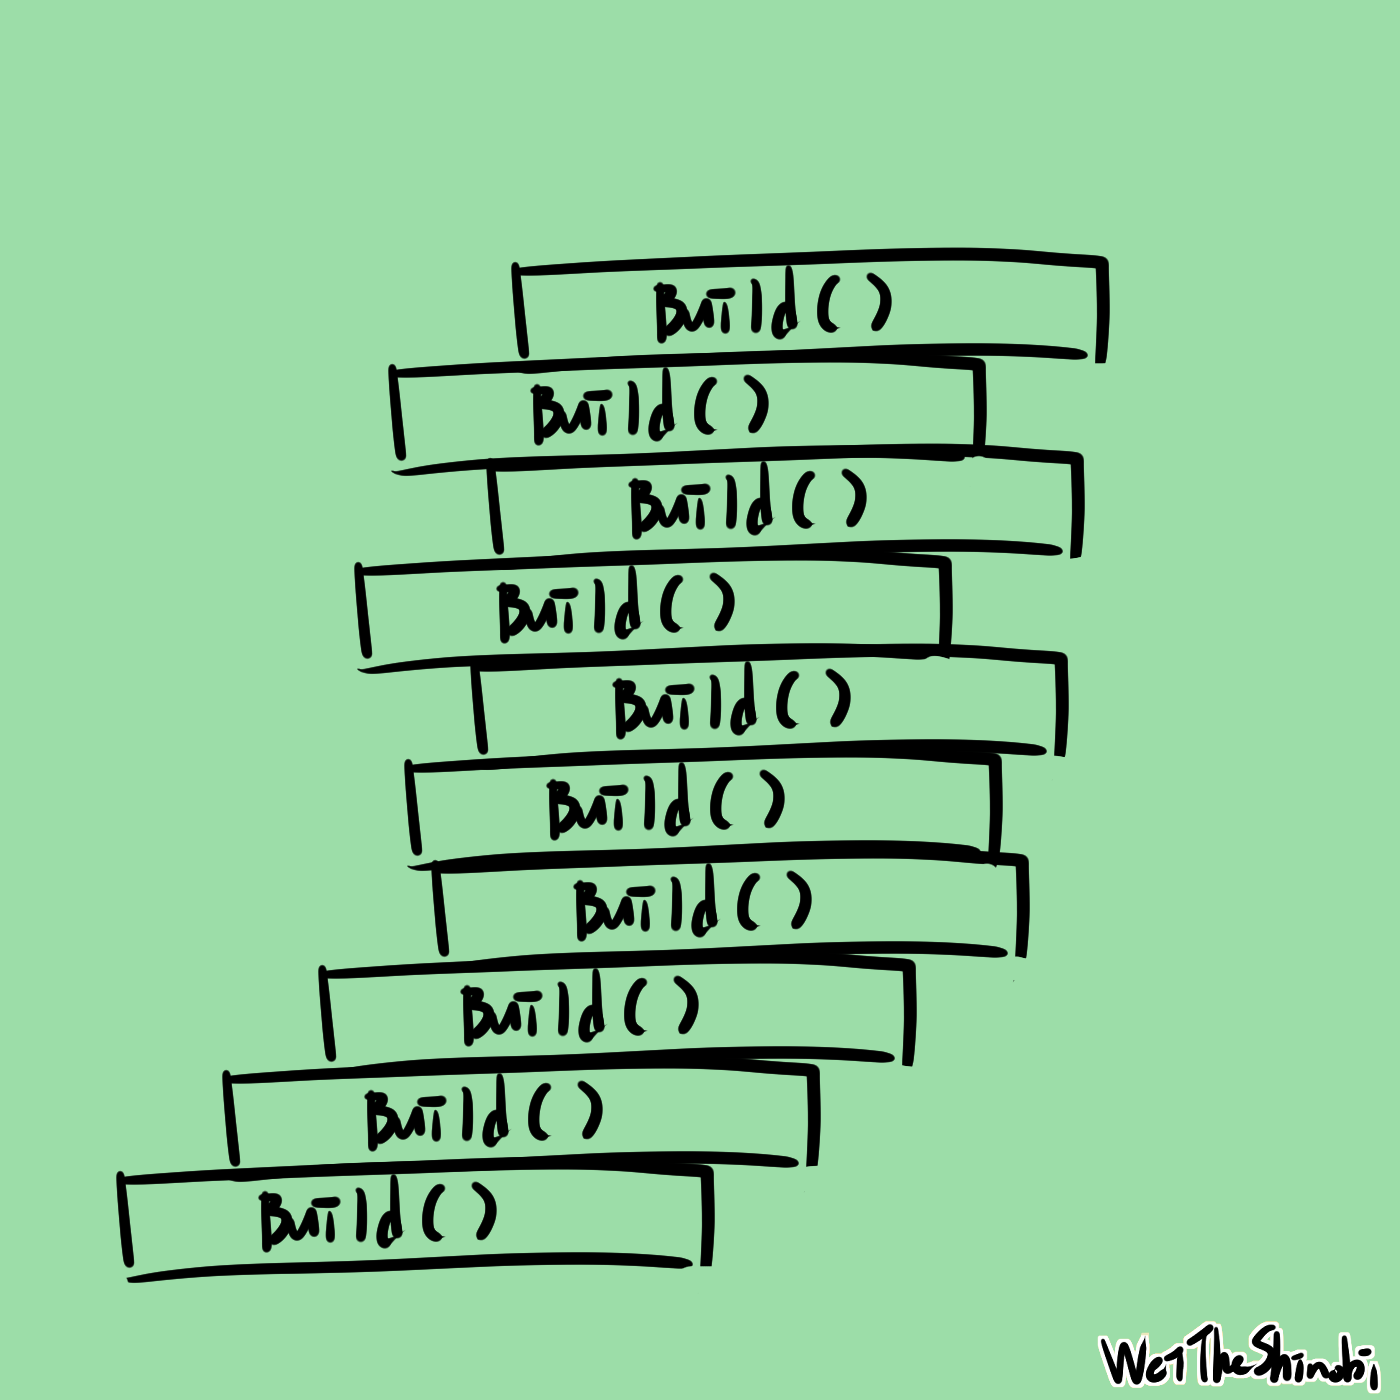 Build()
Build()
Build()
Build()
Build()
Build()
Build()
Build()
Build()
Build()
WeiTheShinobi